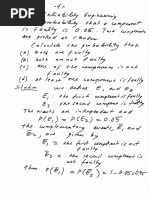 -1-
Reliability Engineering
probability that a component
is faulty is 0.05. Two components
are picked at random.
Calculate the probability that
(a) both are not faulty
(b) both are faulty
(c) one of the components is not
faulty
(d) at least one component is faulty
Solution We define E1, E2
E1: the first component is faulty
E2: the second component is faulty
The events are independent and
P(E1) = P(E2) = 0.05
The complementary events, E1 and
E2, are given by
E1 = the first component is not
faulty
E2 = the second component is
not faulty
Then P(E1) = 1 - P(E1) = 1 - 0.05 = 0.95